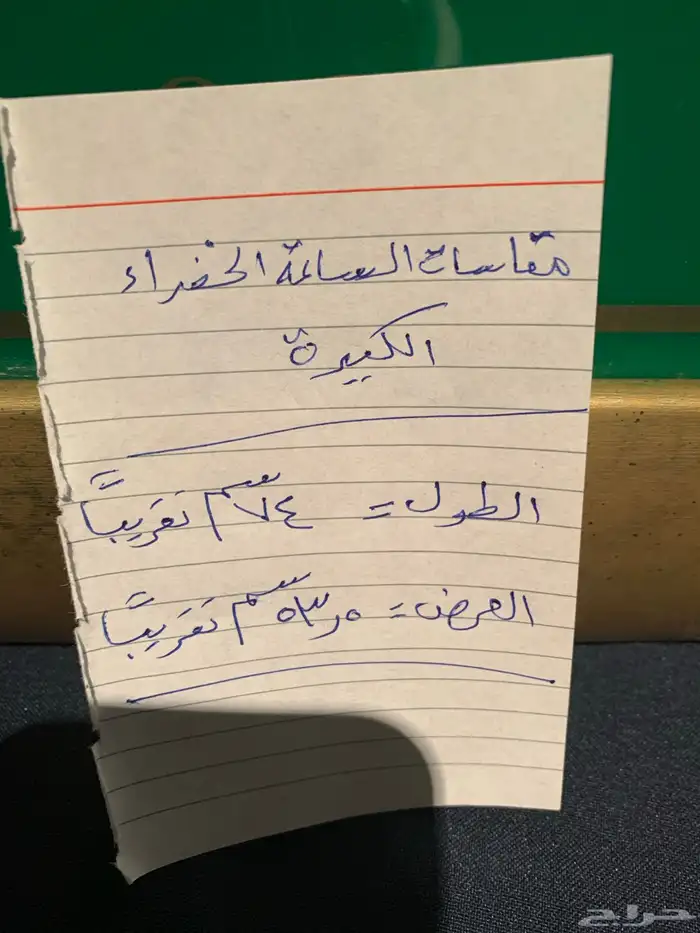 مقاسات الساعة الخضراء
الكبيرة
الطول = ٧٤ سم تقريباً
العرض = ٥٣٫٥ سم تقريباً
حراج